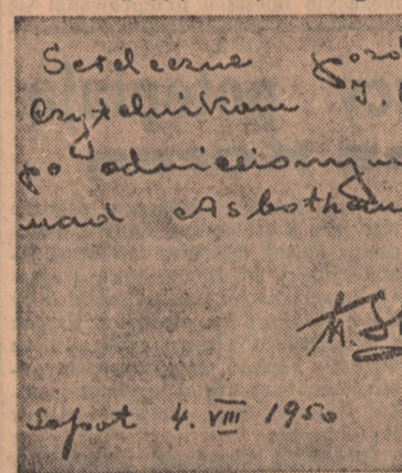 Serdeczne pozd
Czytelnikom
po odniesionym
nad Asbothem
Sopot 4. VIII 1950